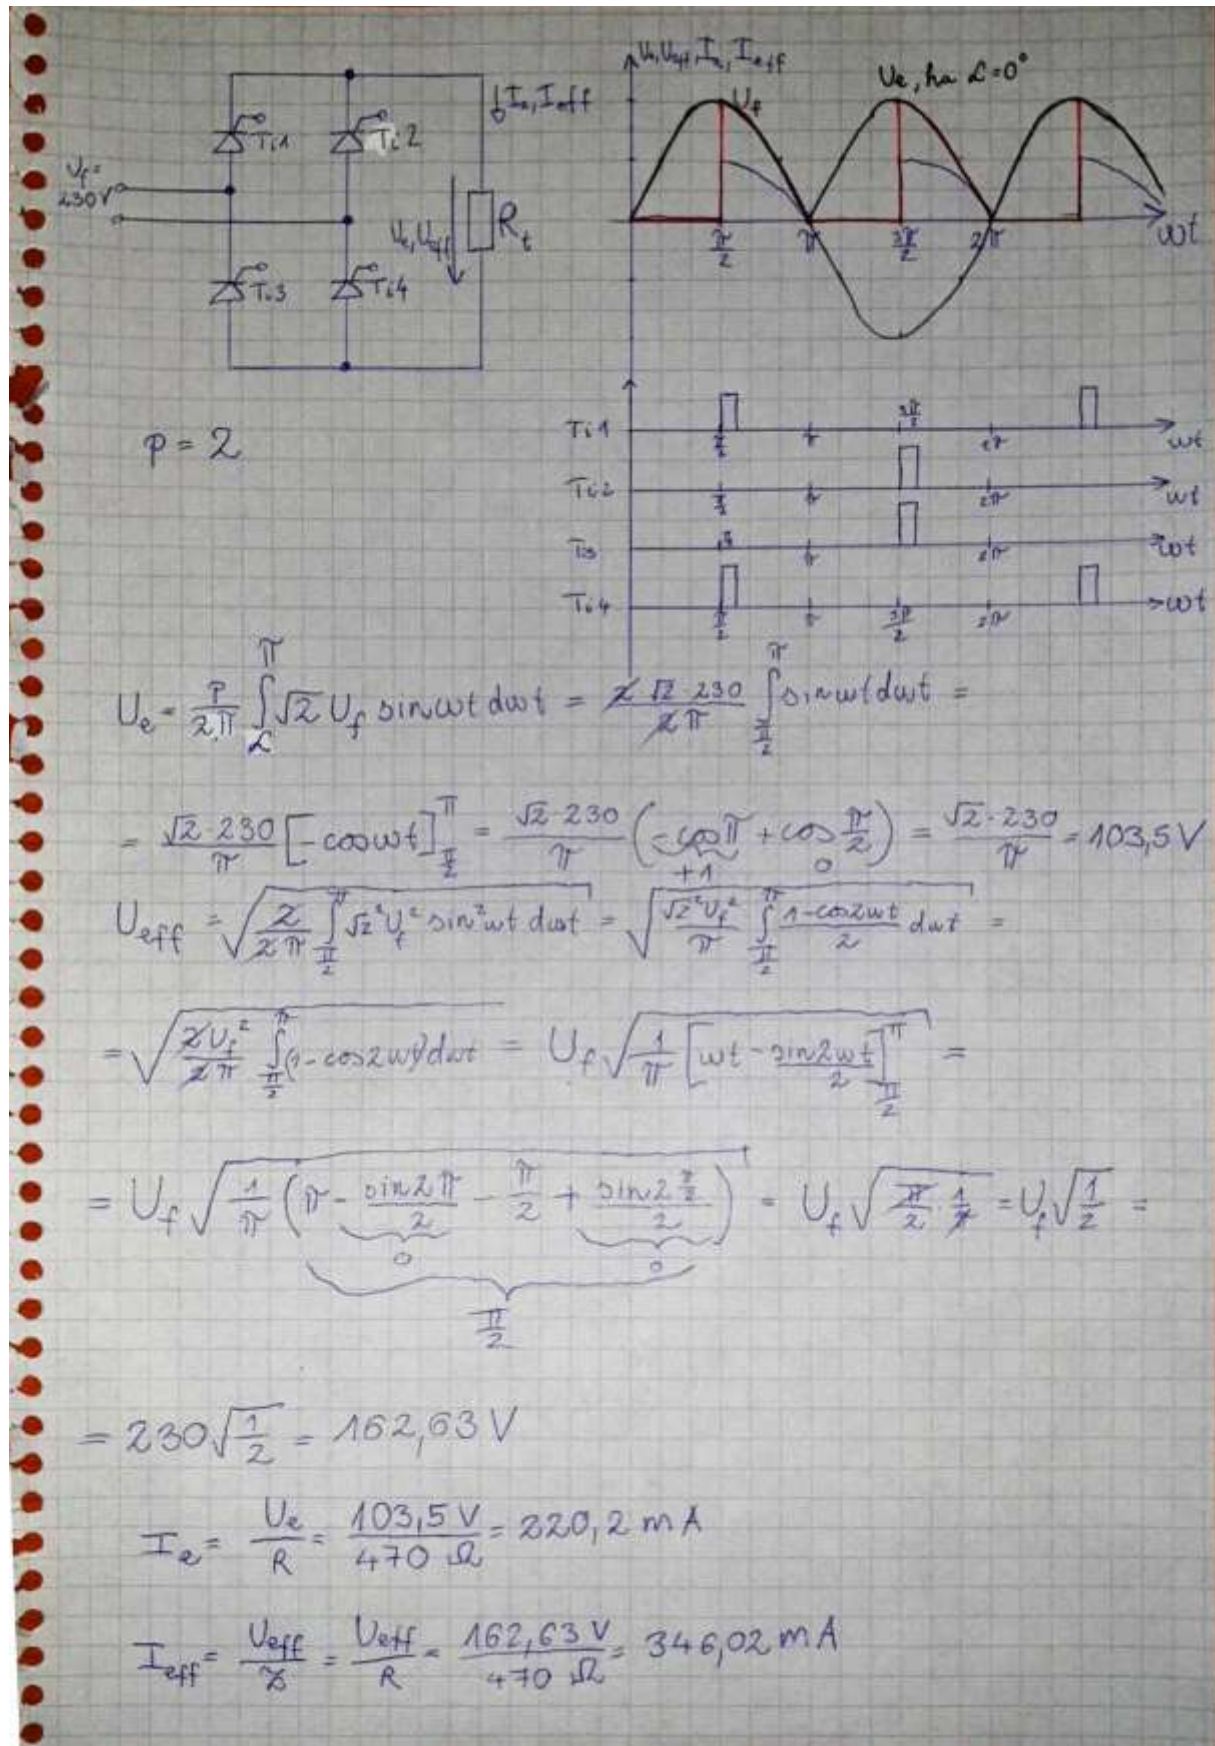 U_f =
230V
Ti1
Ti2
Ti3
Ti4
I_e, I_eff
U_e, U_eff
R_t
U_e, U_eff, I_e, I_eff
U_e, ha α=0°
U_f
π/2 π 3π/2 2π ωt
p = 2
3π/2
Ti1 π/2 π 2π ωt
Ti2 π/2 π 2π ωt
Ti3 π/2 π 2π ωt
Ti4 π/2 π 3π/2 2π ωt
U_e = p/2π ∫_α^π √2 U_f sinωt dωt = 2 √2 230/2π ∫_{π/2}^π sinωt dωt =
= √2·230/π [-cosωt]_{π/2}^π = √2·230/π (-cosπ + cos π/2) = √2·230/π = 103,5 V
+1 0
U_eff = √(2/2π ∫_{π/2}^π √2² U_f² sin²ωt dωt) = √(√2² U_f²/π ∫_{π/2}^π (1-cos2ωt)/2 dωt) =
= √(2U_f²/2π ∫_{π/2}^π (1-cos2ωt)dωt) = U_f √(1/π [ωt - sin2ωt/2]_{π/2}^π) =
= U_f √(1/π (π - sin2π/2 - π/2 + sin2 π/2 /2)) = U_f √(π/2 · 1/π) = U_f √(1/2) =
0 0
π/2
= 230√(1/2) = 162,63 V
I_e = U_e/R = 103,5 V/470 Ω = 220,2 mA
I_eff = U_eff/Z = U_eff/R = 162,63 V/470 Ω = 346,02 mA